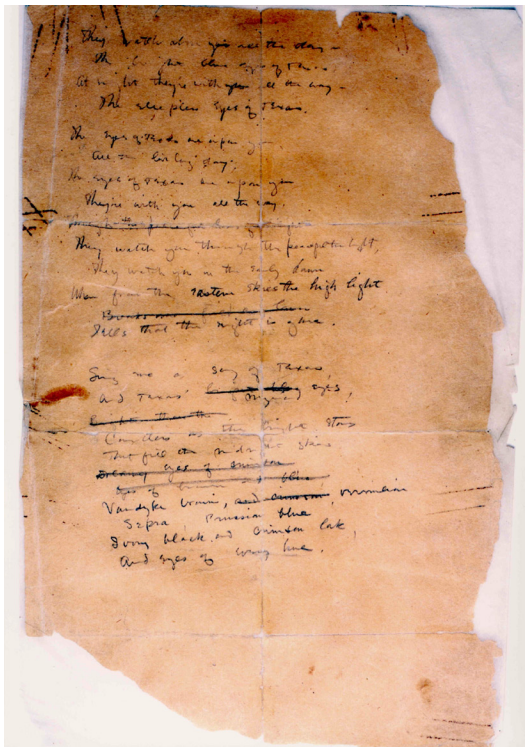 They watch above you all the day,
The bright blue eyes of Texas.
At they're with you all the way,
The sleepless Eyes of Texas.
The eyes of Texas are upon you
All the live long day;
The eyes of Texas are upon you
They're with you all the way.
They watch you through the peaceful night,
They watch you in the early dawn
When from the Eastern skies the high light
Tells that the night is gone.
Sing me a song of Texas,
And Texas' myriad eyes,
Countless as the bright stars
That fill the skies
Vandyke brown, and crimson, vermilion
Sepia, Prussian blue
Ivory black and crimson lake,
And eyes of every hue.